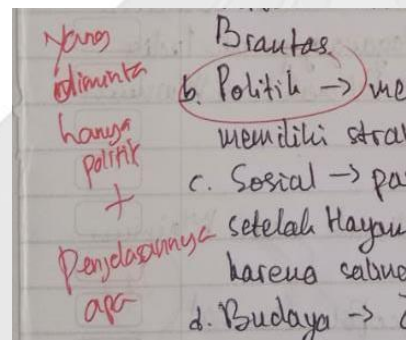 Yang
diminta
hanya
politik
+
Penjelasannya
apa
Brantas
b. Politik → me
memiliki stra
c. Sosial → pa
setelah Hayam
karena
d. Budaya →